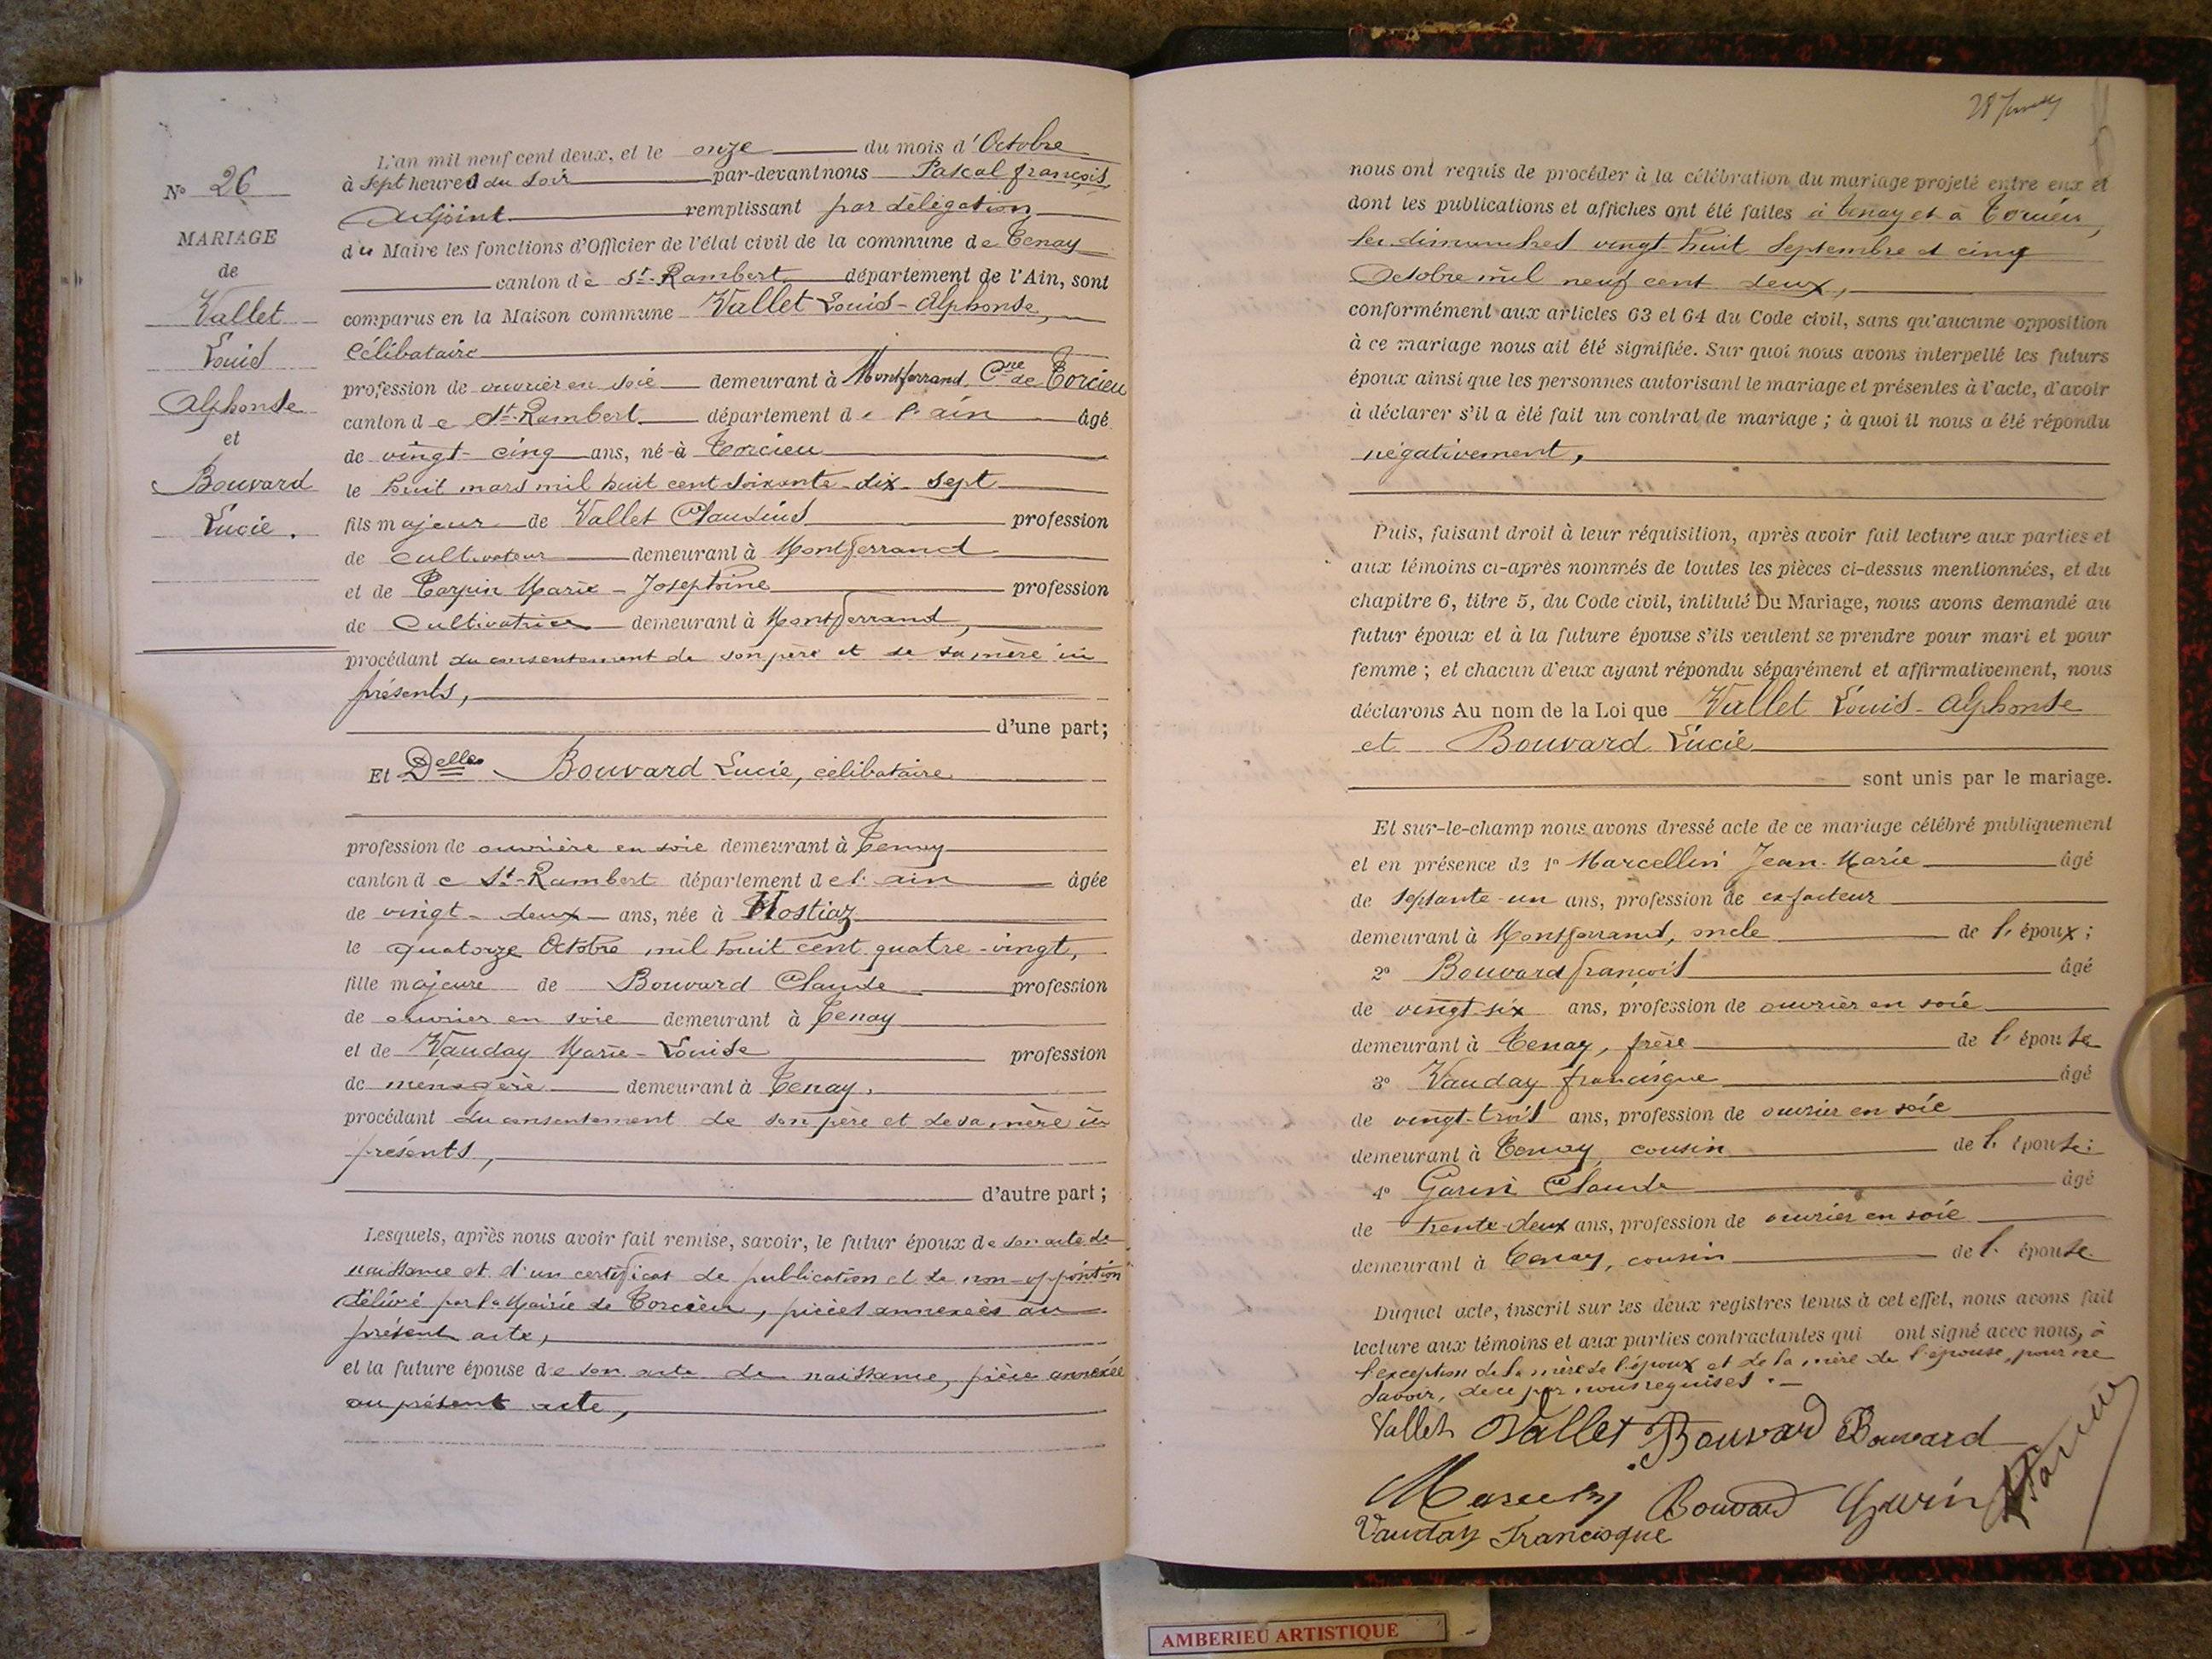 L'an mil neuf cent deux, et le onze du mois d'Octobre
à sept heures du soir par-devant nous Pascal françois,
Adjoint remplissant par délégation
du Maire les fonctions d'Officier de l'état civil de la commune de Tenay
canton de St-Rambert département de l'Ain, sont
comparus en la Maison commune Vallet Louis-Alphonse,
célibataire
profession de ouvrier en soie demeurant à Montferrand, Cne de Torcieu
canton de St-Rambert département de l'ain âgé
de vingt-cinq ans, né à Torcieu
le huit mars mil huit cent soixante-dix-sept
fils majeur de Vallet Claudius profession
de cultivateur demeurant à Montferrand
et de Marie-Josephine profession
de Cultivatrice demeurant à Montferrand,
procédant du consentement de son père et de sa mère ici
présents,
d'une part;
Et Delle Bouvard Lucie, célibataire
profession de ouvrière en soie demeurant à Tenay
canton de St-Rambert département de l'ain âgée
de vingt-deux ans, née à Hostiaz
le quatorze Octobre mil huit cent quatre-vingt,
fille majeure de Bouvard Claude profession
de ouvrier en soie demeurant à Tenay
et de Vauday Marie-Louise profession
de menagère demeurant à Tenay,
procédant du consentement de son père et de sa mère ici
présents,
d'autre part;
Lesquels, après nous avoir fait remise, savoir, le futur époux de son acte de
naissance et d'un certificat de publication et de non-opposition
délivré par la Mairie de Torcieu, pièces annexées au
présent acte,
et la future épouse de son acte de naissance, pièce annexée
au présent acte,
No 26
MARIAGE
de
Vallet
Louis
Alphonse
et
Bouvard
Lucie.
nous ont requis de procéder à la célébration du mariage projeté entre eux et
dont les publications et affiches ont été faites à Tenay et à Torcieu,
les dimanches vingt-huit Septembre et cinq
Octobre mil neuf cent deux,
conformément aux articles 63 et 64 du Code civil, sans qu'aucune opposition
à ce mariage nous ait été signifiée. Sur quoi nous avons interpellé les futurs
époux ainsi que les personnes autorisant le mariage et présentes à l'acte, d'avoir
à déclarer s'il a été fait un contrat de mariage; à quoi il nous a été répondu
négativement,
Puis, faisant droit à leur réquisition, après avoir fait lecture aux parties et
aux témoins ci-après nommés de toutes les pièces ci-dessus mentionnées, et du
chapitre 6, titre 5, du Code civil, intitulé Du Mariage, nous avons demandé au
futur époux et à la future épouse s'ils veulent se prendre pour mari et pour
femme; et chacun d'eux ayant répondu séparément et affirmativement, nous
déclarons Au nom de la Loi que Vallet Louis-Alphonse
et Bouvard Lucie
sont unis par le mariage.
Et sur-le-champ nous avons dressé acte de ce mariage célébré publiquement
et en présence de 1o Marcellin Jean-Marie âgé
de septante-un ans, profession de ex-facteur
demeurant à Montferrand, oncle de l'époux;
2o Bouvard françois âgé
de vingt-six ans, profession de ouvrier en soie
demeurant à Tenay, frère de l'épouse
3o Vauday francisque âgé
de vingt-trois ans, profession de ouvrier en soie
demeurant à Tenay, cousin de l'épouse;
4o Garin Claude âgé
de trente-deux ans, profession de ouvrier en soie
demeurant à Tenay, cousin de l'épouse.
Duquel acte, inscrit sur les deux registres tenus à cet effet, nous avons fait
lecture aux témoins et aux parties contractantes qui ont signé avec nous, à
l'exception de la mère de l'époux et de la mère de l'épouse, pour ne
savoir, de ce par nous requises.
Vallet Vallet Bouvard Bouvard
Bouvard Garin
Vauday Francisque
AMBERIEU ARTISTIQUE